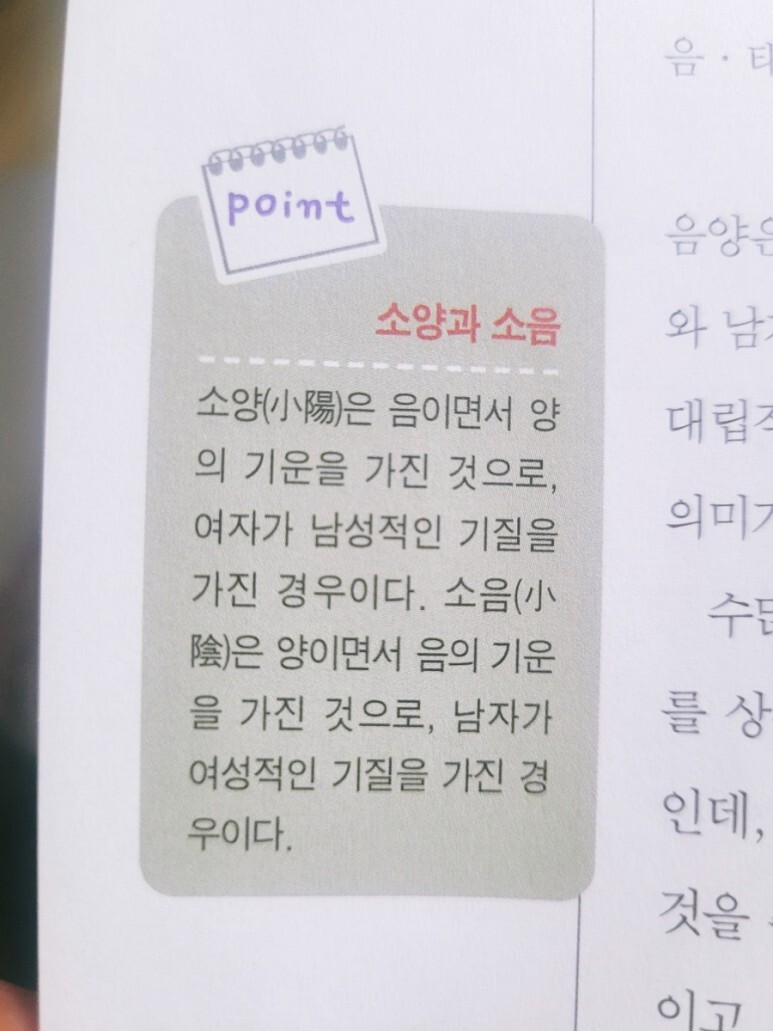 point
소양과 소음
소양(小陽)은 음이면서 양
의 기운을 가진 것으로,
여자가 남성적인 기질을
가진 경우이다. 소음(小
陰)은 양이면서 음의 기운
을 가진 것으로, 남자가
여성적인 기질을 가진 경
우이다.
음 ·
와
를
인데,
것을
이고